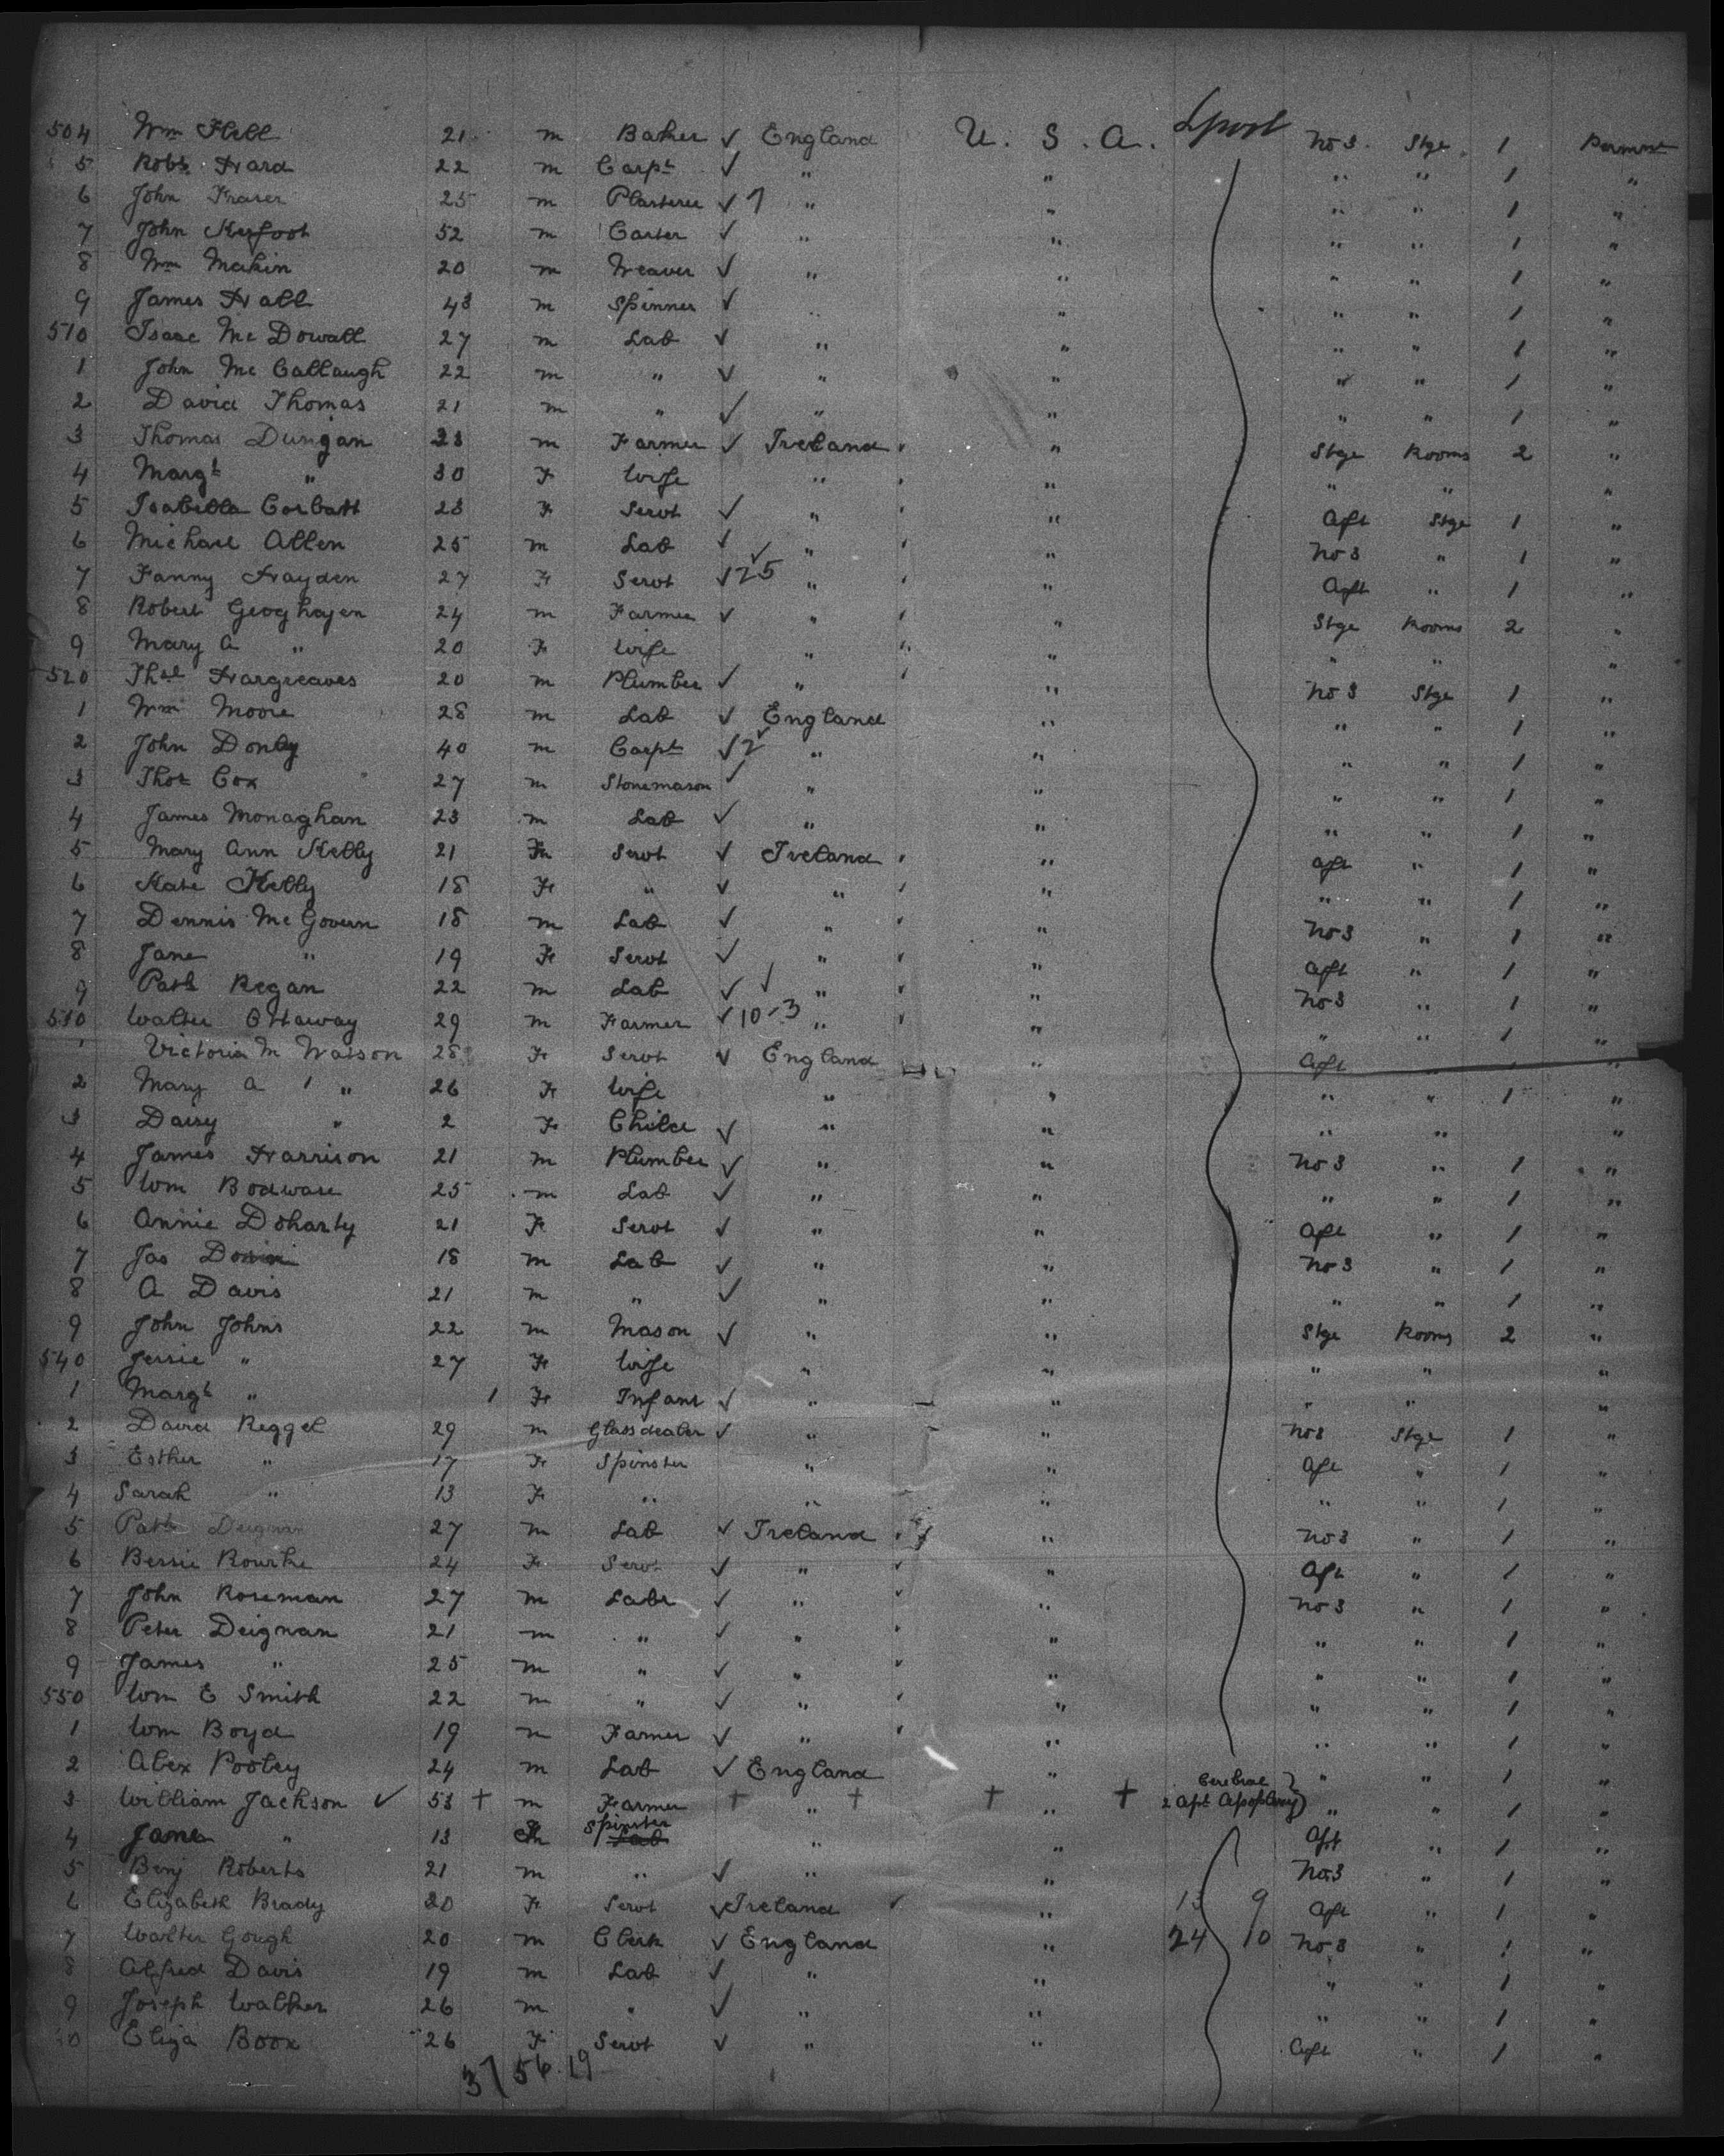 504 Wm Hill 21 m Baker ✓ England U. S. A. Lpool No 3. Stge 1 Permnt
5 Robt Ward 22 m Carpt ✓ " " " " 1 "
6 John Fraser 25 m Plasterer ✓ 7 " " " " 1 "
7 John Kerfoot 52 m Carter ✓ " " " " 1 "
8 Wm Makin 20 m Weaver ✓ " " " " 1 "
9 James Hall 43 m Spinner ✓ " " " " 1 "
510 Isaac Mc Dowall 27 m Lab ✓ " " " " 1 "
1 John Mc Callaugh 22 m " ✓ " " " " 1 "
2 David Thomas 21 m " ✓ " " " " 1 "
3 Thomas Dungan 33 m Farmer ✓ Ireland " Stge Rooms 2 "
4 Margt " 30 F Wife " " " " "
5 Isabella Corbatt 23 F Servt ✓ " " Aft Stge 1 "
6 Michael Allen 25 m Lab ✓ " " No 3 " 1 "
7 Fanny Hayden 27 F Servt ✓ 25 " " Aft " 1 "
8 Robert Geoghagen 24 m Farmer ✓ " " Stge Rooms 2 "
9 Mary A " 20 F Wife " " " " "
520 Hargreaves 20 m Plumber ✓ " " No 3 Stge 1 "
1 Wm Moore 28 m Lab ✓ England " " " 1 "
2 John Donly 40 m Carpt ✓ 2 " " " " 1 "
3 Thos Cox 27 m Stonemason ✓ " " " " 1 "
4 James Monaghan 23 m Lab ✓ " " " " 1 "
5 Mary Ann Kelly 21 F Servt ✓ Ireland " Aft " 1 "
6 Kate Kelly 18 F " ✓ " " " " 1 "
7 Dennis Mc Govern 18 m Lab ✓ " " No 3 " 1 "
8 Jane " 19 F Servt ✓ " " Aft " 1 "
9 Patk Regan 22 m Lab ✓ ✓ " " No 3 " 1 "
530 Walter Ottaway 29 m Farmer ✓ 10-3 " " " " 1 "
1 Victoria M Watson 28 F Servt ✓ England " Aft "
2 Mary A " 26 F Wife " " " " 1 "
3 Daisy " 2 F Child ✓ " " " " "
4 James Harrison 21 m Plumber ✓ " " No 3 " 1 "
5 Wm Bodware 25 m Lab ✓ " " " " 1 "
6 Annie Doharty 21 F Servt ✓ " " Aft " 1 "
7 Jas 18 m Lab ✓ " " No 3 " 1 "
8 A Davis 21 m " ✓ " " " " 1 "
9 John Johns 22 m Mason ✓ " " Stge Rooms 2 "
540 Jessie " 27 F Wife " " " " "
1 Margt " 1 F Infant ✓ " " " " "
2 David Reggel 29 m Glassdealer ✓ " " No 3 Stge 1 "
3 Esther " 17 F Spinster " " Aft " 1 "
4 Sarah " 13 F " " " " " 1 "
5 Patk Deignan 27 m Lab ✓ Ireland " No 3 " 1 "
6 Bessie Rourke 24 F Servt ✓ " " Aft " 1 "
7 John Roseman 27 m Labr ✓ " " No 3 " 1 "
8 Peter Deignan 21 m " ✓ " " " " 1 "
9 James " 25 m " ✓ " " " " 1 "
550 Wm E Smith 22 m " ✓ " " " " 1 "
1 Wm Boyd 19 m Farmer ✓ " " " " 1 "
2 Alex Pooley 24 m Lab ✓ England " " " 1 "
3 William Jackson ✓ 53 + m Farmer + " + + " + Cerebral 2 Apl Apoplexy " " 1 "
4 " 13 F Spinster Lab " " Aft " 1 "
5 Benj Roberts 21 m " ✓ " " No 3 " 1 "
6 Elizabeth Brady 20 F Servt ✓ Ireland " 15 9 Aft " 1 "
7 Walter Gough 20 m Clerk ✓ England " 24 10 No 3 " 1 "
8 Alfred Davis 19 m Lab ✓ " " " " 1 "
9 Joseph Walker 26 m " ✓ " " " " 1 "
Eliza Boox 26 F Servt ✓ " " Aft " 1 "
37 56 19